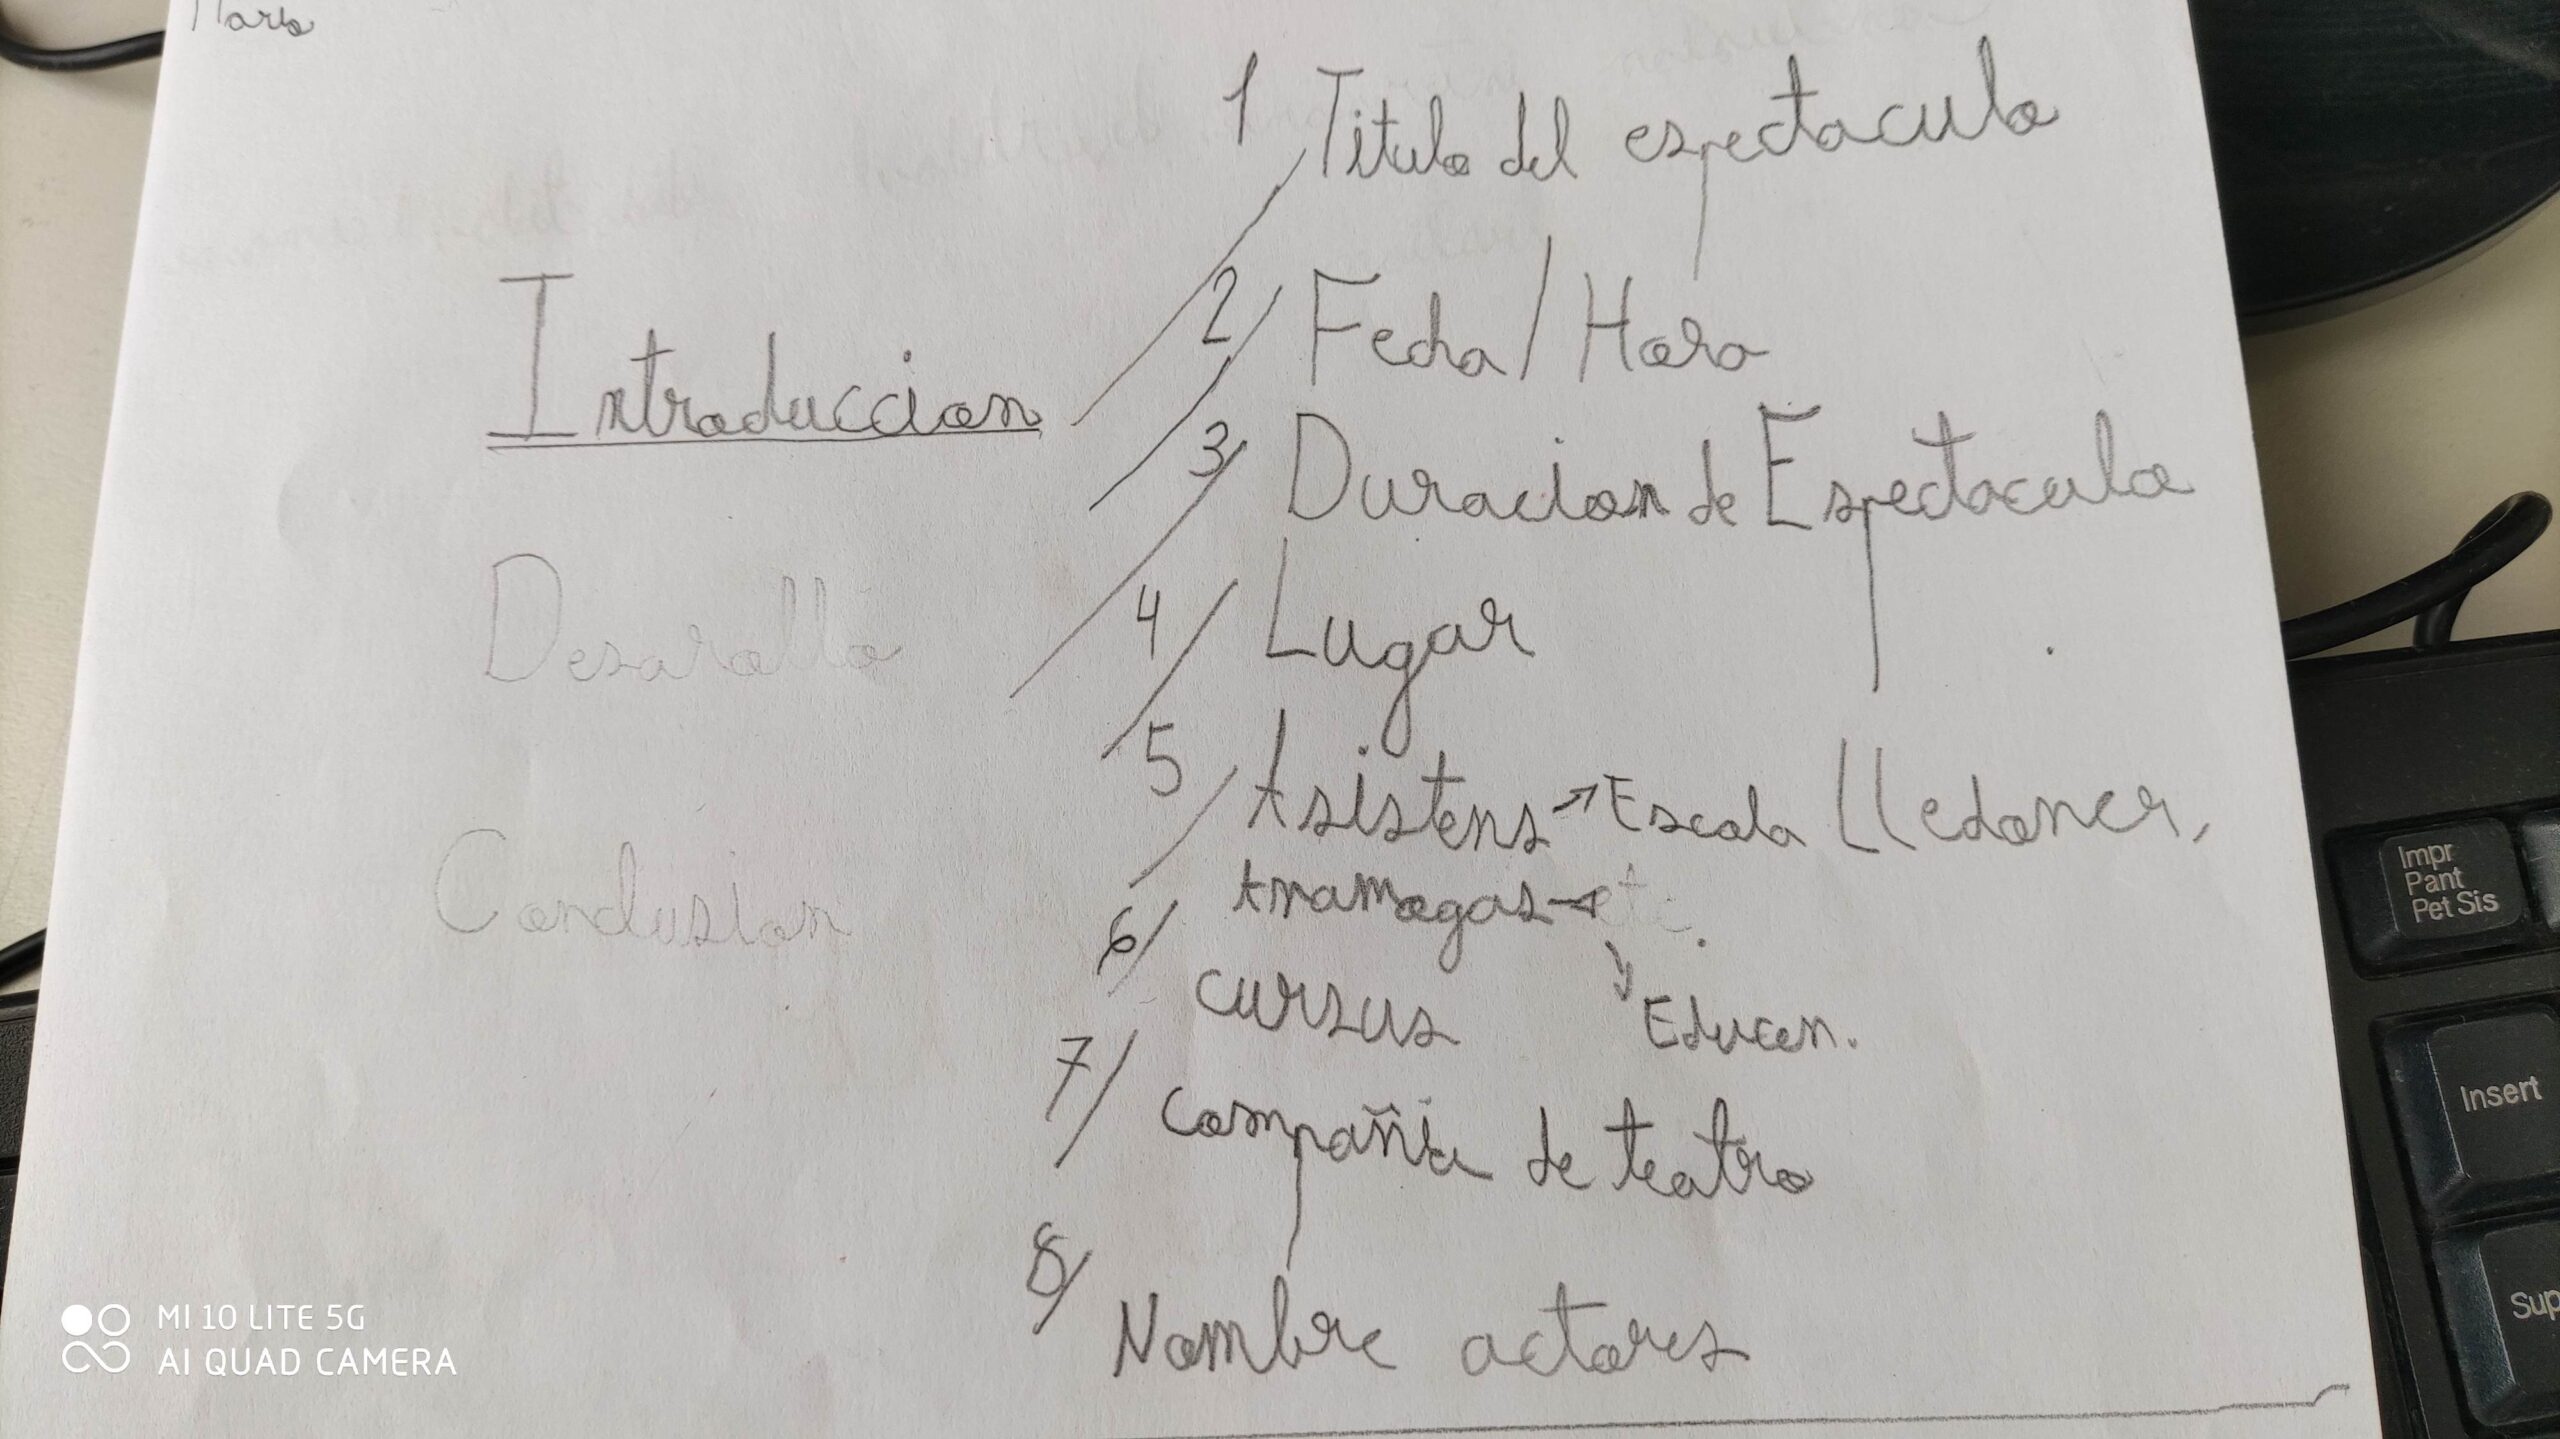 1 Titulo del espectaculo
2/ Fecha / Hora
Introduccion
3/ Duracion de Espectaculo
Desarollo
4/ Lugar
5/ Asistens → Escola Lledoner,
Conclusion
Anamogas → etc.
6/ cursus
Educem.
7/ compañia de teatro
8/ Nombre actores
MI 10 LITE 5G
AI QUAD CAMERA
Impr
Pant
Pet Sis
Insert
Sup